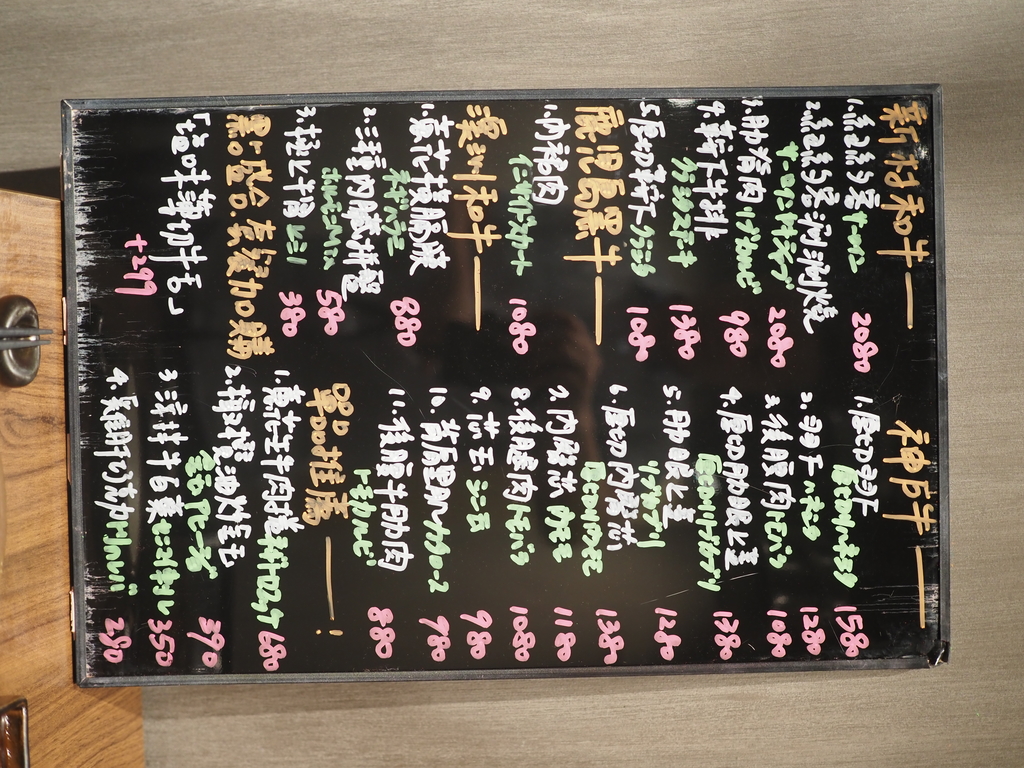 新村和牛
1.紐約客サーロイン 2080
2.紐約客涮涮燒
サーロインヤキシャブ 2080
3.肋脊肉リブカルビ 980
4.鞍下牛排
クラシタステーキ 1380
5.厚切鞍下クラシタ 1080
鹿児島黑牛
1.內裙肉
インサイドスカート 1080
澳洲和牛
1.蔥花橫膈膜
ネギハラミ 880
2.三種內臟拼盤
ホルモンMix 580
3.極上牛胃ミノ 380
點盛合.套餐加購
「塩味薄切牛舌」
+299
神戶牛
1.厚切羽下
厚切りハネシタ 1580
2.羽下ハネシタ 1280
3.後腰肉トモバラ 1080
4.厚切肋眼上蓋
厚切りリブカブリ 1380
5.肋眼上蓋
リブカブリ 1280
6.厚切內臀芯
厚切り内モモ 1380
7.內臀芯 内モモ 1180
8.後腿肉トモバラ 1080
9.芯玉シン玉 980
10.背肩里肌カタロース 980
11.後腰牛肋肉
トモカルビ 880
單品推薦!
1.蔥花生牛肉捲ネギトロユッケ 680
2.橄欖油炒金毛
390
3 涼拌牛百葉センマイ刺し 350
4.雞肝巧克力トリレバ 280